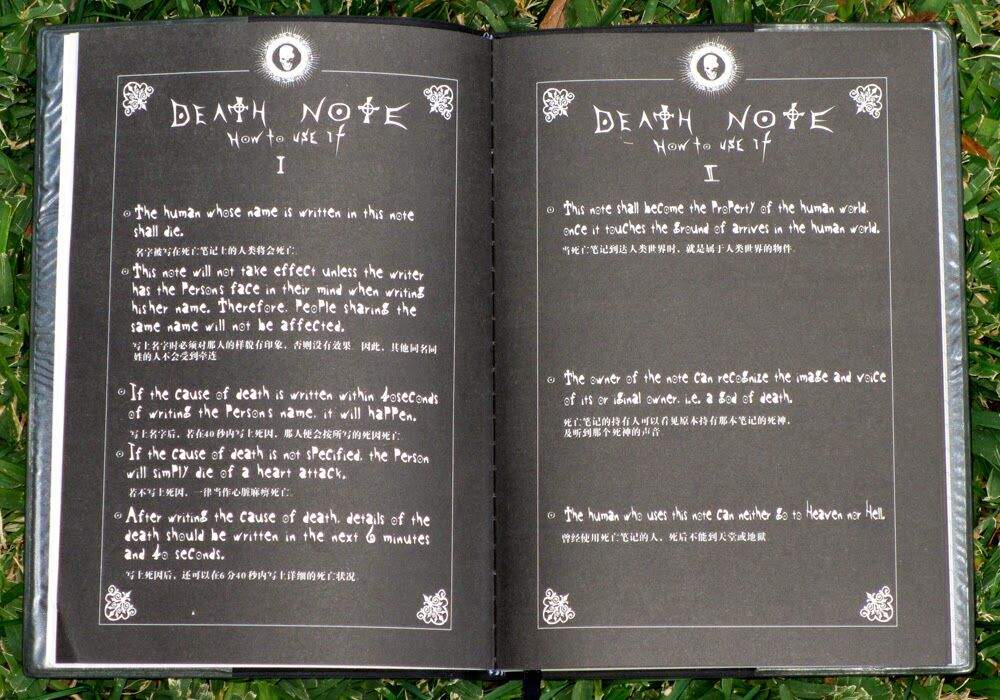 DEATH NOTE
HOW TO USE IT
I
The human whose name is written in this note
shall die.
名字被写在死亡笔记上的人类将会死亡.
This note will not take effect unless the writer
has the Persons face in their mind when writing
his her name. Therefore. People sharing the
same name will not be affected.
写上名字时必须对那人的样貌有印象，否则没有效果. 因此，其他同名同
姓的人不会受到牵连.
If the cause of death is written within 40seconds
of writing the Persons name. it will happen.
写上名字后，若在40秒内写上死因，那人便会按所写的死因死亡.
If the cause of death is not specified. the Person
will simply die of a heart attack.
若不写上死因，一律当作心脏麻痹死亡.
After writing the cause of death. details of the
death should be written in the next 6 minutes
and 40 seconds.
写上死因后，还可以在6分40秒内写上详细的死亡状况.
DEATH NOTE
HOW TO USE IT
II
This note shall become the Property of the human world.
once it touches the ground of arrives in the human world.
当死亡笔记到达人类世界时，就是属于人类世界的物件.
The owner of the note can recognize the image and voice
of its or iginal owner. i.e. a god of death.
死亡笔记的持有人可以看见原本持有那本笔记的死神，
及听到那个死神的声音.
The human who uses this note can neither go to Heaven nor Hell.
曾经使用死亡笔记的人，死后不能到天堂或地狱.